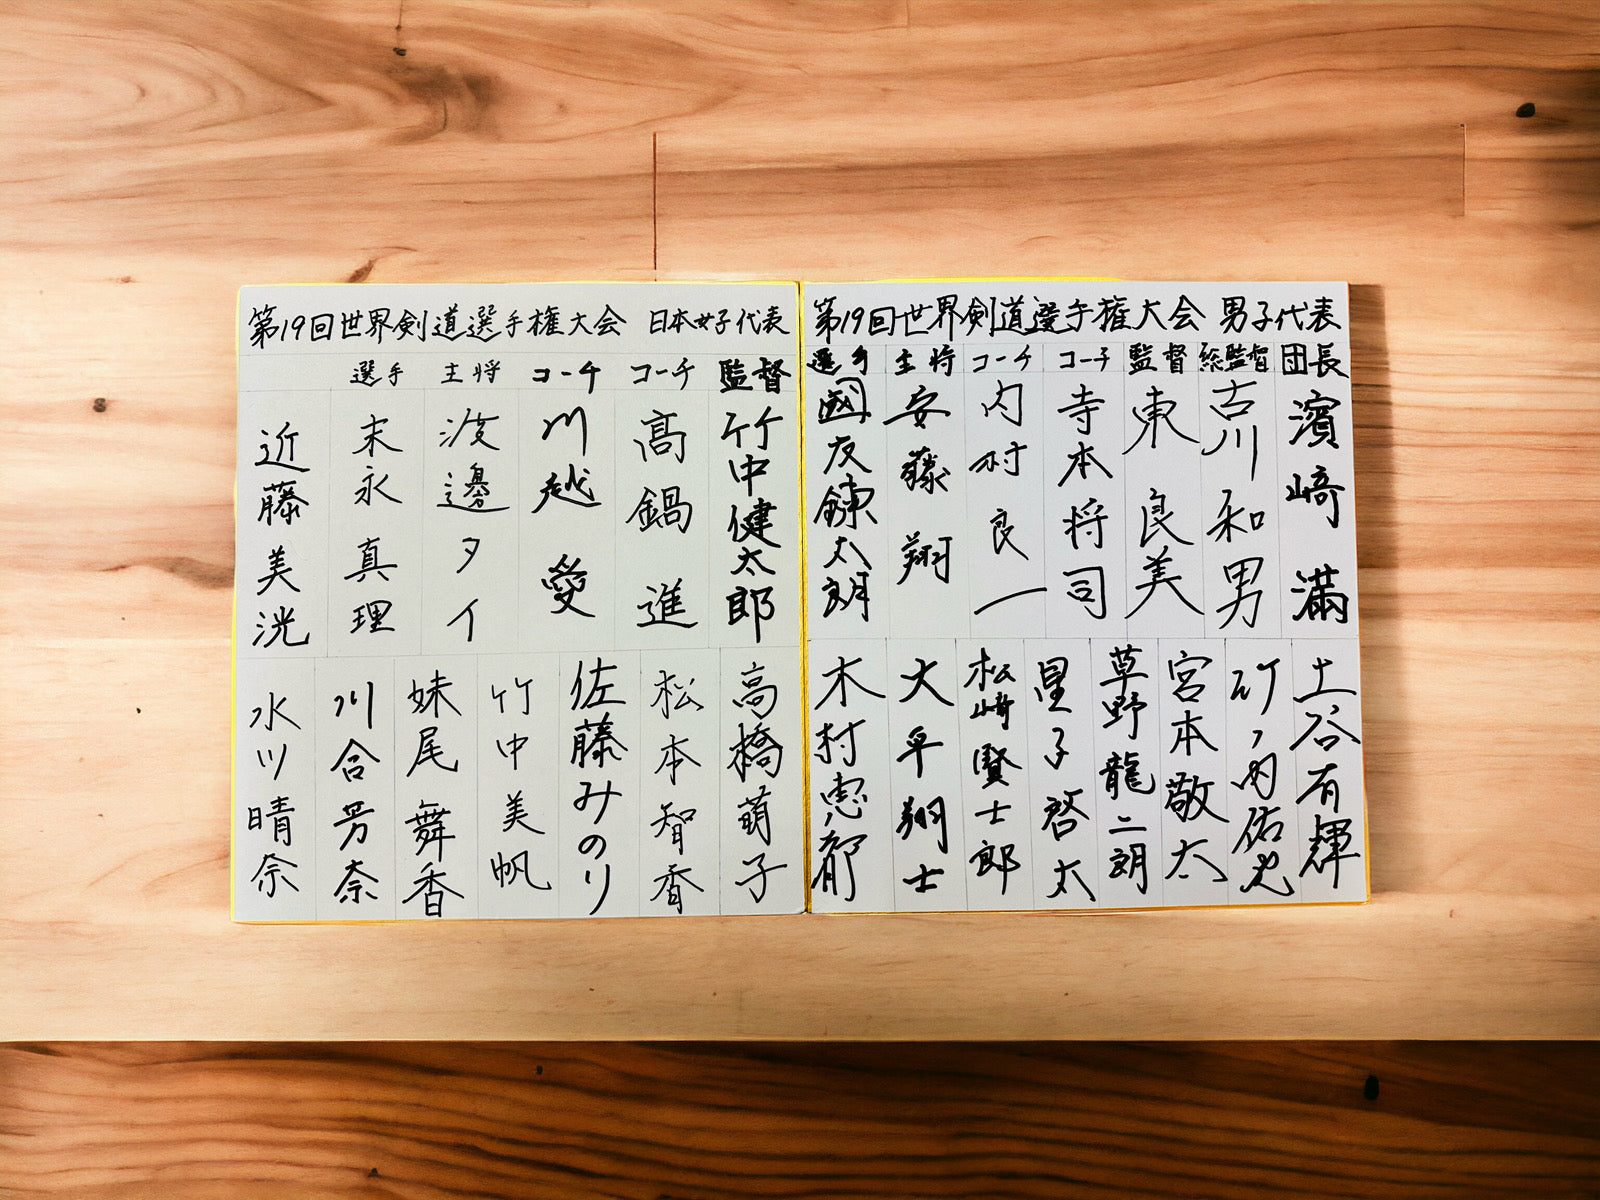 第19回世界剣道選手権大会 男子代表
団長 濱﨑 満
総監督 古川和男
監督 東 良美
コーチ 寺本将司
コーチ 内村良一
主将 安藤 翔
選手 國友鍊太朗
土谷有輝
竹ノ内佑也
宮本敬太
草野龍二朗
星子啓太
松﨑賢士郎
大平翔士
木村恵都
第19回世界剣道選手権大会 日本女子代表
監督 竹中健太郎
コーチ 高鍋 進
コーチ 川越 愛
主将 渡邊タイ
選手 末永真理
近藤美洸
高橋萌子
松本智香
佐藤みのり
竹中美帆
妹尾舞香
川合芳奈
水川晴奈